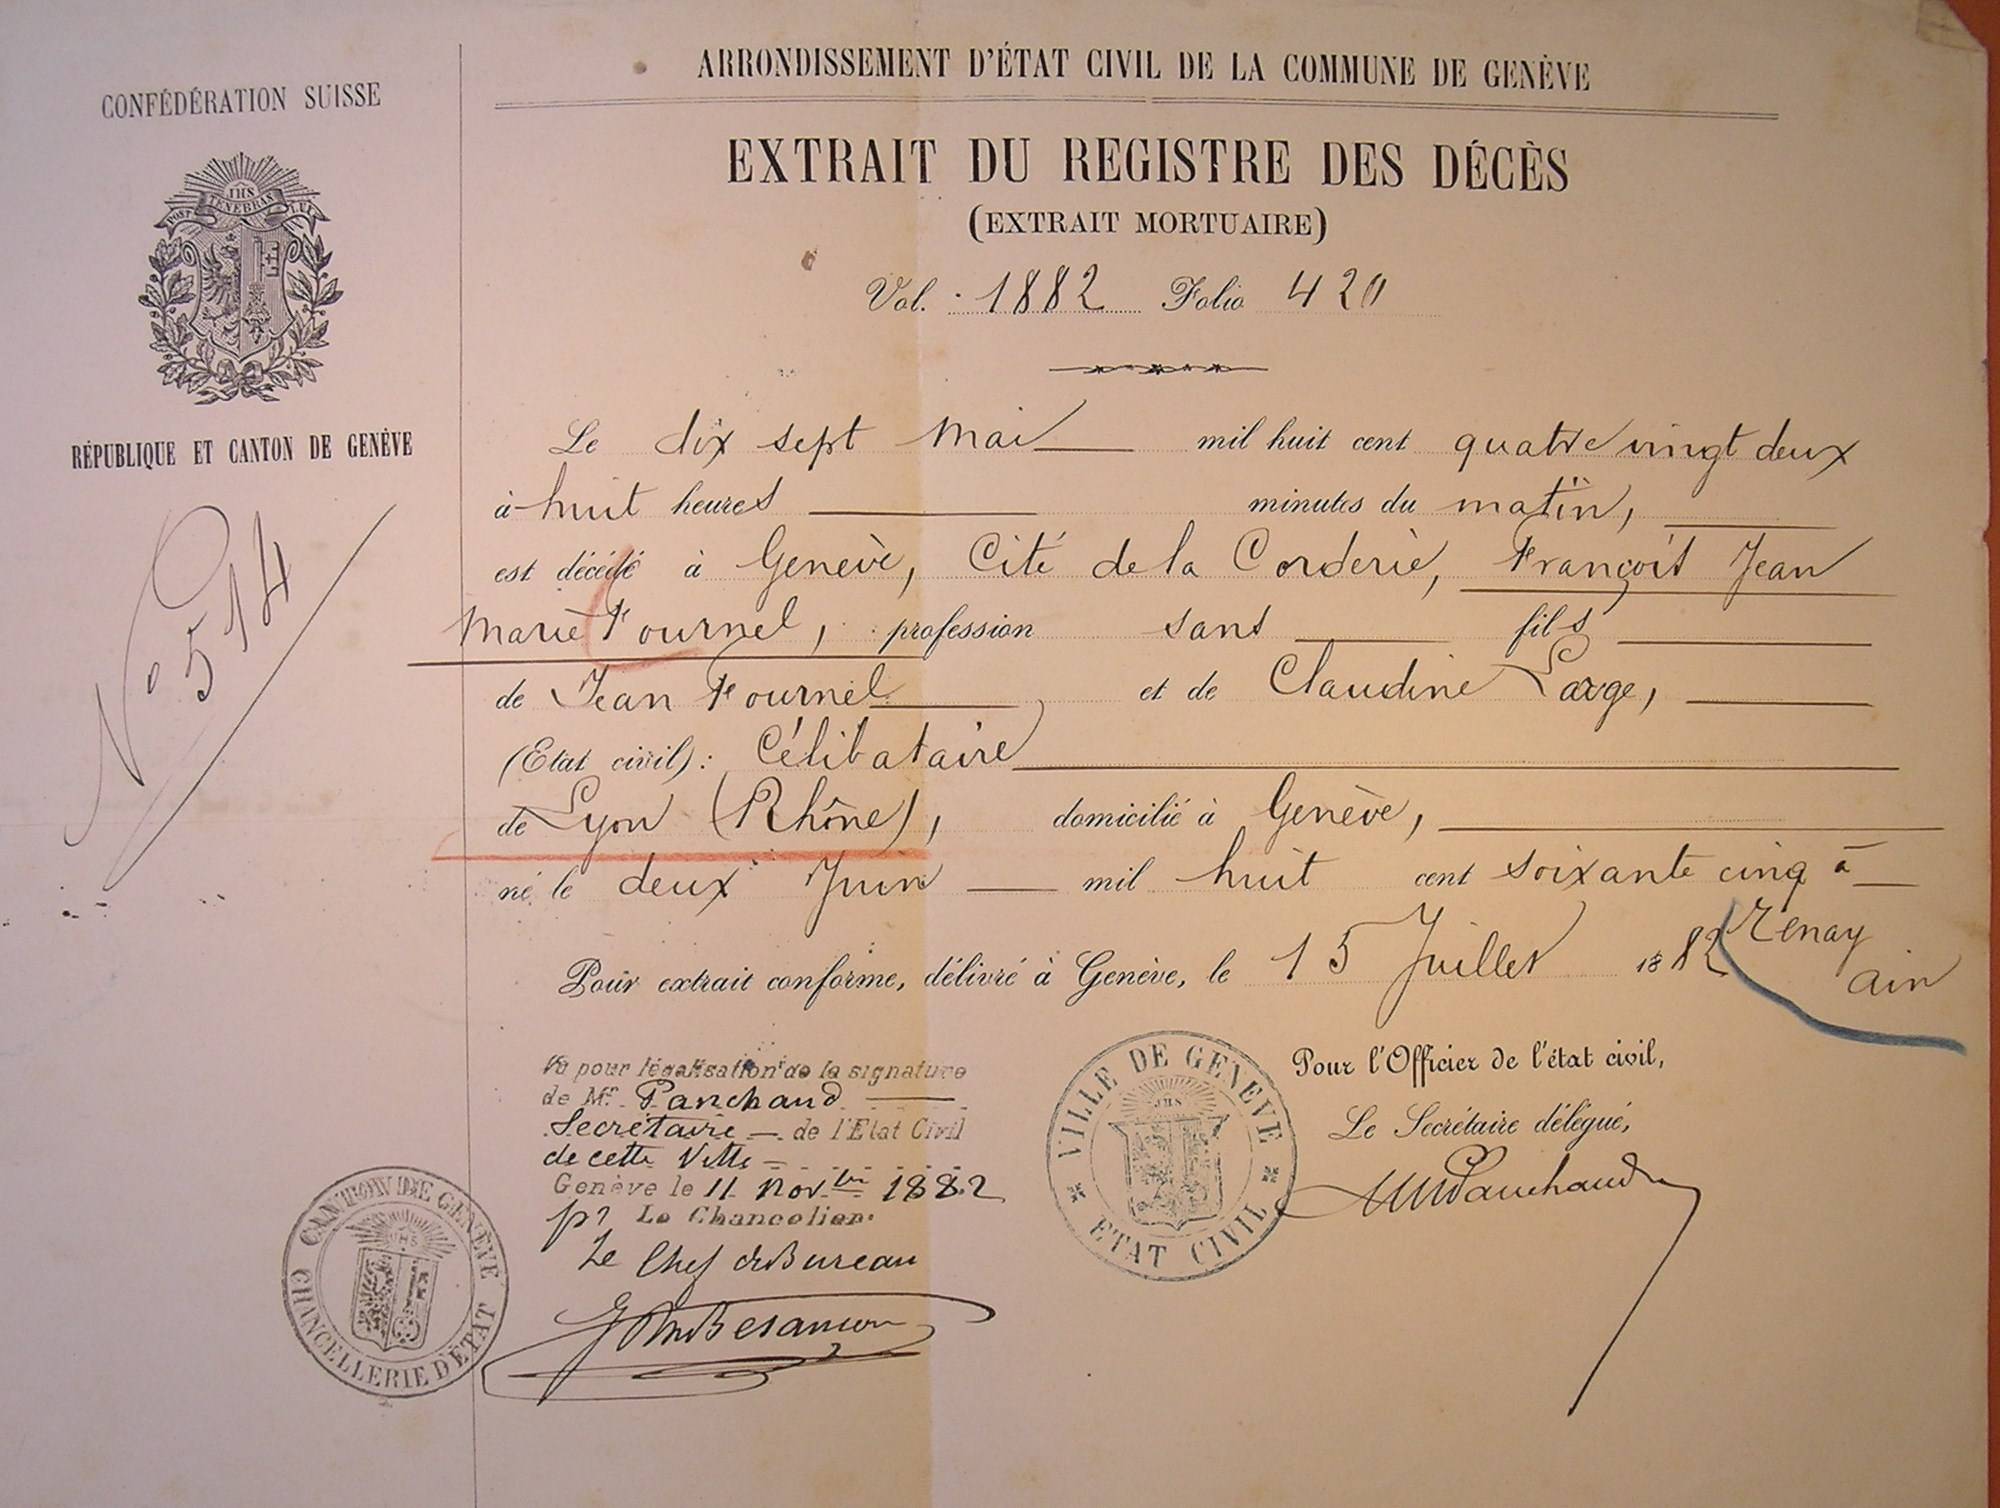 CONFÉDÉRATION SUISSE
JHS
POST TENEBRAS LUX
RÉPUBLIQUE ET CANTON DE GENÈVE
No 514
ARRONDISSEMENT D'ÉTAT CIVIL DE LA COMMUNE DE GENÈVE
EXTRAIT DU REGISTRE DES DÉCÈS
(EXTRAIT MORTUAIRE)
Vol. 1882 Folio 420
Le dix sept Mai mil huit cent quatre vingt deux
à huit heures minutes du matin,
est décédé à Genève, Cité de la Corderie, François Jean
Marie Fournel, profession sans fils
de Jean Fournel et de Claudine Large,
(Etat civil): Célibataire
de Lyon (Rhône), domicilié à Genève,
né le deux Juin mil huit cent soixante cinq à
Tenay
ain
Pour extrait conforme, délivré à Genève, le 15 Juillet 1882
Pour l'Officier de l'état civil,
Le Secrétaire délégué,
Panchaud
VILLE DE GENÈVE
JHS
ETAT CIVIL
Vu pour légalisation de la signature
de Mr. Panchaud
Secrétaire de l'Etat Civil
de cette Ville
Genève le 11 Novbre 1882
pr Le Chancelier.
Le Chef de Bureau
Besançon
CANTON DE GENÈVE
JHS
CHANCELLERIE D'ÉTAT